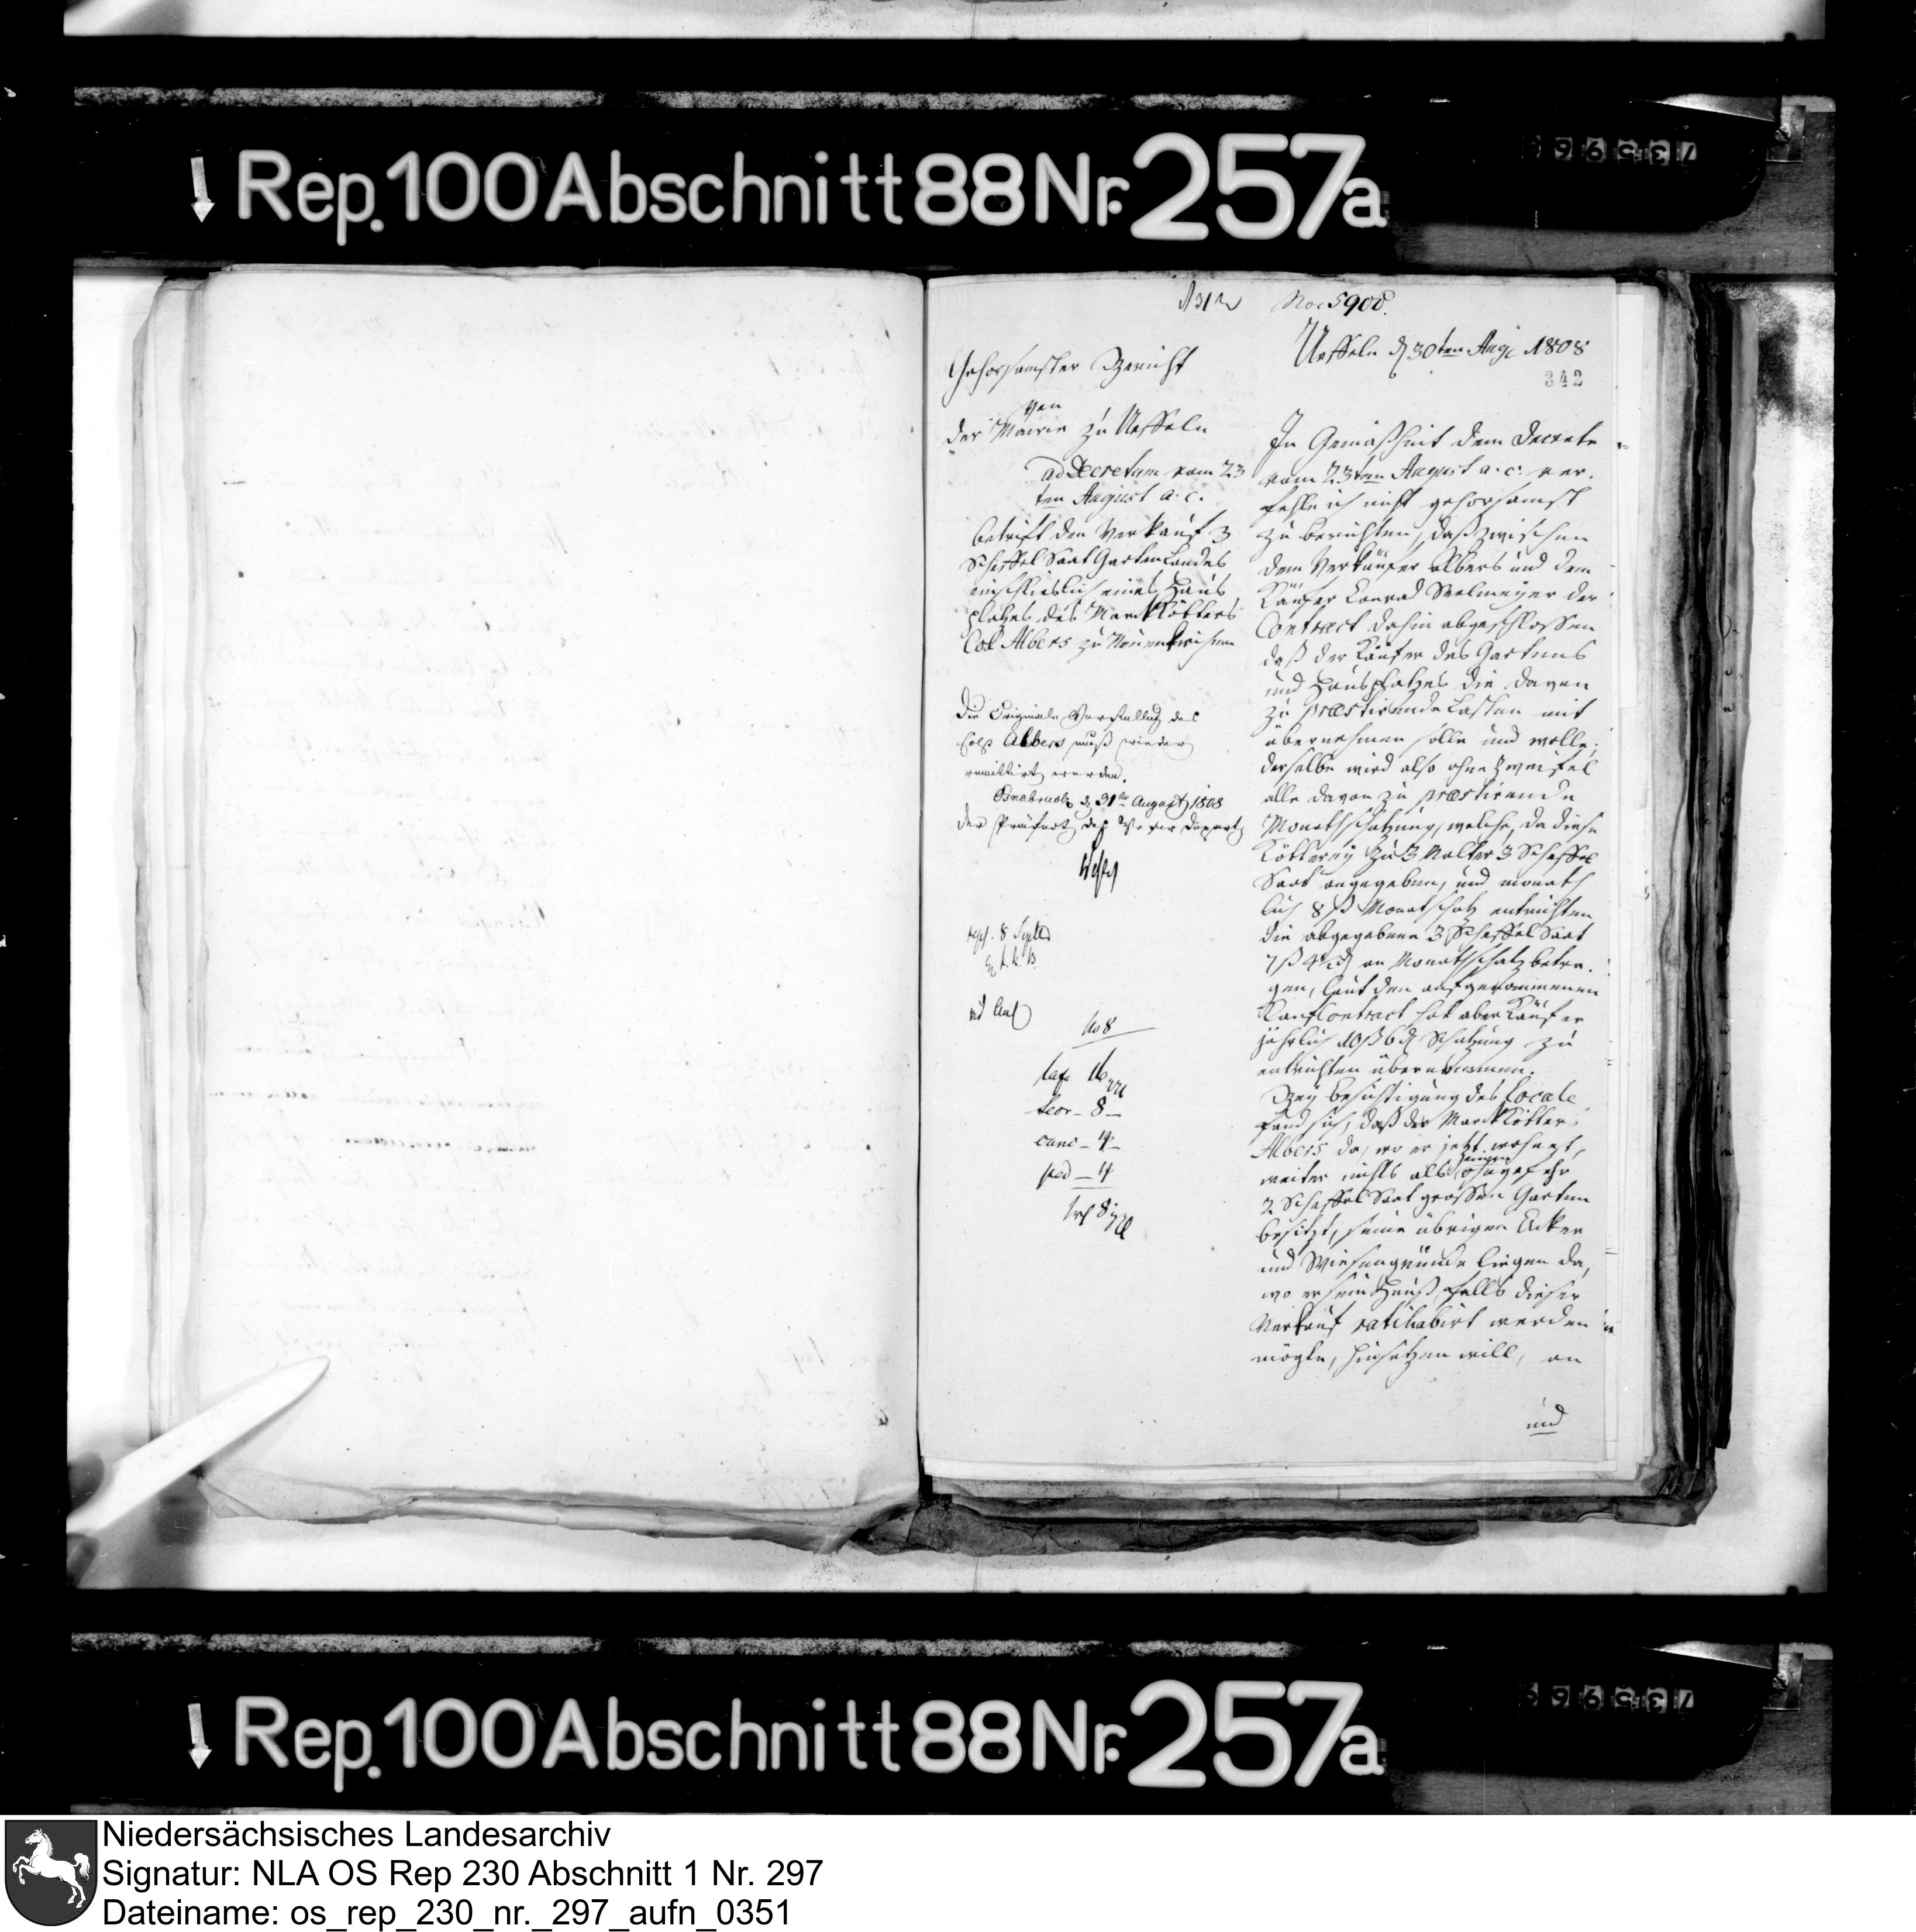 Rep. 100 Abschnitt 88 Nr. 257a
No. 5900.
Ueffeln d 30ten Aug. 1808
342
Gehorsamster Bericht
von
der Mairie zu Ueffeln
ad Decretum vom 23
ten August a. c.
betrift den Verkauf 3
Scheffel Saat Gartenlandes
einschlieslich eines Haus
platzes des Markkötters
Col. Albers zu Neuenkirchen
Die Originale Vorstellung des
Col. Albers muß wieder
remittirt werden.
Osnabruck d 31ten August 1808
Der Präfect des Weser Departs
No 8
16
8
4
4
In Gemäßheit dem Decrete
vom 23ten August a. c. ver-
fehle ich nicht gehorsamst
zu berichten, daß zwischen
dem Verkäufer Albers und dem
Käufer Conrad Welmeyer der
Contract dahin abgeschlossen
daß der Käufer des Gartens
und Hausplatzes die davon
zu præstirende Lasten mit
übernehmen solle und wolle;
derselbe wird also ohne Zweifel
alle davon zu præstirende
Monathschatzung, welche, da diese
Kötterey zu 3 Malter 3 Scheffel
Saat angegeben, und monath
lich 8 ß Monathschatz entrichten
die abgegebene 3 Scheffel Saat
an Monathschatz betra-
gen, laut den aufgenommenen
Kaufcontract hat aber Käufer
jährlich 10 ß 6 d Schatzung zu
entrichten übernommen.
Bey Besichtigung des Locale
fand sich, daß der Markkötter
Albers da, wo er jetzt wohnet,
weiter nichts als einen ohngefehr
2 Scheffel Saat grossen Garten
besitzt, seine übrigen Acker
und Wiesengründe liegen da,
wo er sein Hauß, falls dieser
Verkauf ratihabirt werden
mögte, hinsetzen will, an
und
Rep. 100 Abschnitt 88 Nr. 257a
Niedersächsisches Landesarchiv
Signatur: NLA OS Rep 230 Abschnitt 1 Nr. 297
Dateiname: os_rep_230_nr._297_aufn_0351